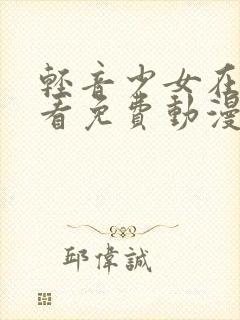 輕音少女在
看免費動漫
邱偉誠